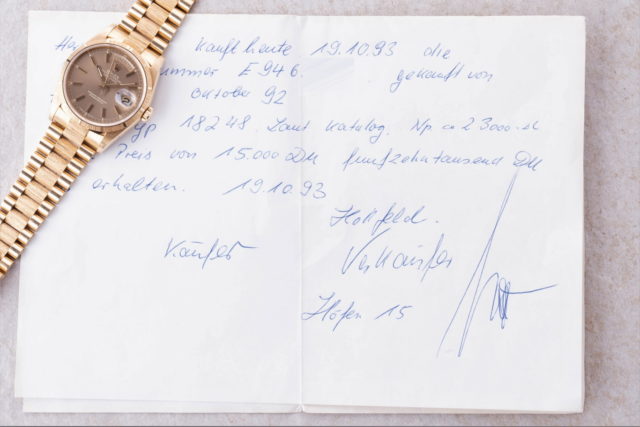 kauft heute 19.10.93 die
ummer E946. gekauft von
Oktober 92
yp 18248 Laut Katalog. Np ca 23000.-
Preis von 15.000 DM fünfzehntausend DM
erhalten. 19.10.93
Hollfeld.
Käufer Verkäufer
Höfen 15